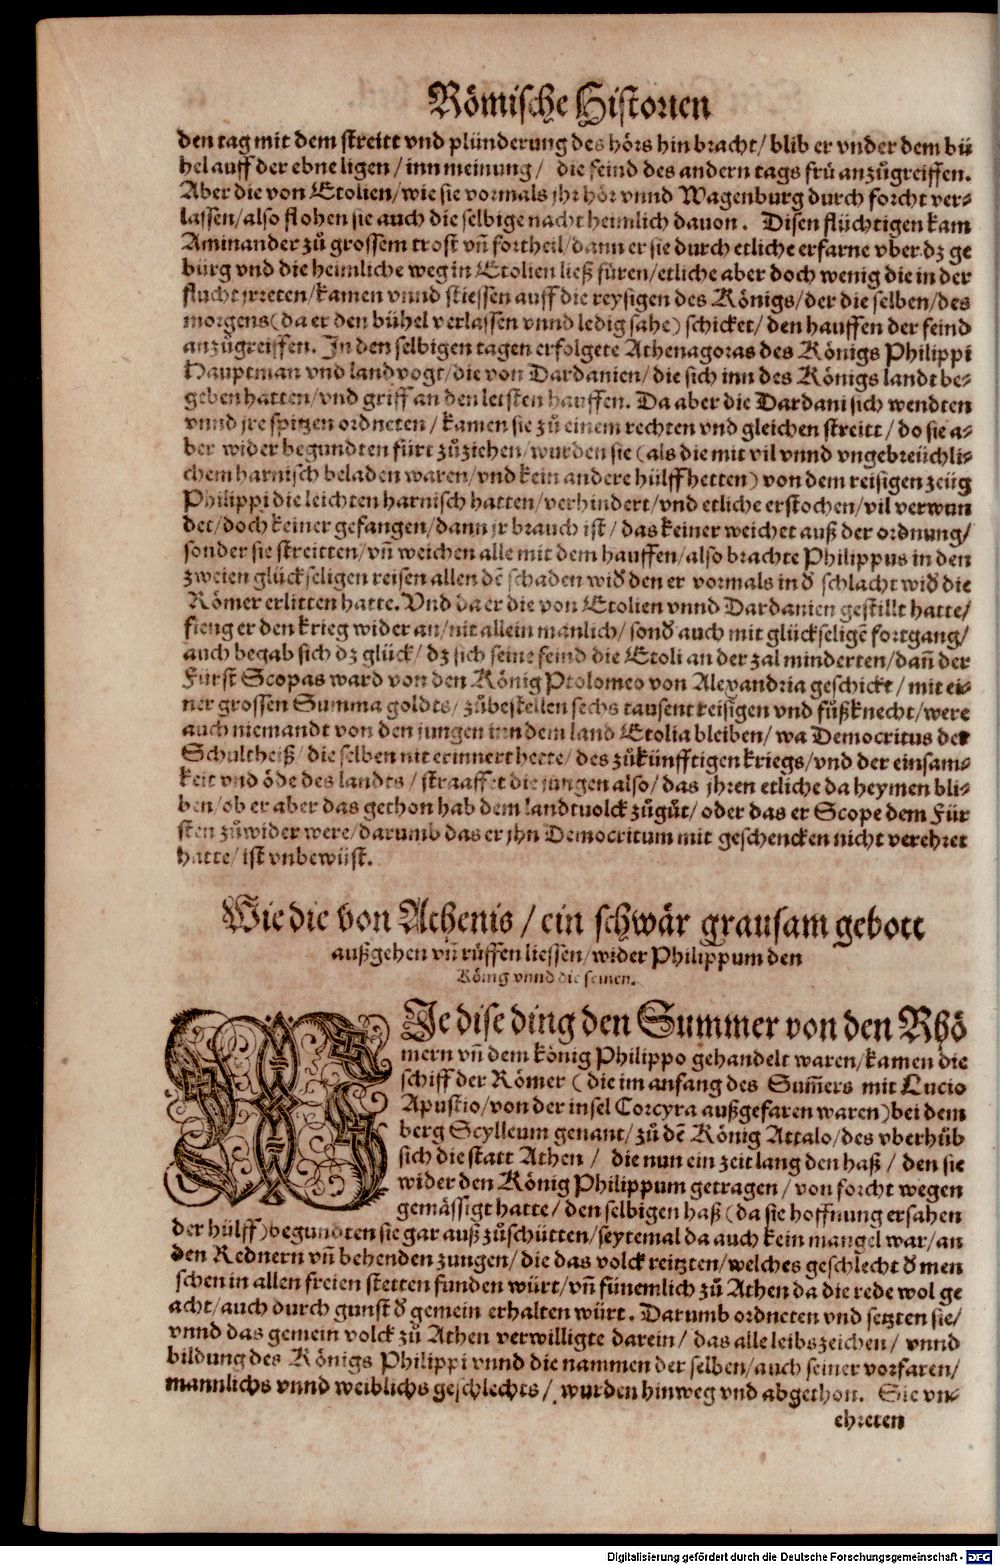 Römische Historien
den tag mit dem streitt vnd plünderung des hörs hin bracht/ blib er vnder dem bü
hel auff der ebne ligen / inn meinung / die feind des andern tags frü anzůgreiffen.
Aber die von Etolien/ wie sie vormals jhr hör vnnd Wagenburg durch forcht ver⸗
lassen/ also flohen sie auch die selbige nacht heimlich dauon. Disen flüchtigen kam
Aminander zů grossem trost vñ fortheil/ dann er sie durch etliche erfarne vber dz ge
bürg vnd die heimliche weg in Etolien ließ füren/ etliche aber doch wenig die in der
flucht jrreten/ kamen vnnd stiessen auff die reysigen des Königs/ der die selben/ des
morgens (da er den bühel verlassen vnnd ledig sahe) schicket/ den hauffen der feind
anzůgreiffen. In den selbigen tagen erfolgete Athenagoras des Königs Philippi
Hauptman vnd landvogt/ die von Dardanien/ die sich inn des Königs landt be⸗
geben hatten/ vnd griff an den letsten hauffen. Da aber die Dardani sich wendten
vnnd jre spitzen ordneten / kamen sie zů einem rechten vnd gleichen streitt / do sie a⸗
ber wider begundten fürt zůziehen/ wurden sie (als die mit vil vnnd vngebreüchli⸗
chem harnisch beladen waren/ vnd kein andere hülff hetten) von dem reisigen zeüg
Philippi die leichten harnisch hatten/ verhindert/ vnd etliche erstochen/ vil verwun
det/ doch keiner gefangen/ dann jr brauch ist / das keiner weichet auß der ordnung/
sonder sie streitten/ vñ weichen alle mit dem hauffen/ also brachte Philippus in den
zweien glückseligen reisen allen dẽ schaden wid̃ den er vormals in d̃ schlacht wid̃ die
Römer erlitten hatte. Vnd da er die von Etolien vnnd Dardanien gestillt hatte/
fieng er den krieg wider an/ nit allein manlich/ sond̃ auch mit glückseligẽ fortgang/
auch begab sich dz glück/ dz sich seine feind die Etoli an der zal minderten/ dañ der
Fürst Scopas ward von den König Ptolomeo von Alexandria geschickt / mit ei⸗
ner grossen Summa goldts/ zůbestellen sechs tausent reisigen vnd fůßknecht/ were
auch niemandt von den jungen inn dem land Etolia bleiben/ wa Democritus der
Schultheiß/ die selben nit erinnert hette/ des zůkünfftigen kriegs/ vnd der einsam⸗
keit vnd öde des landts / straaffet die jungen also/ das jhren etliche da heymen bli⸗
ben/ ob er aber das gethon hab dem landtuolck zůgůt/ oder das er Scope dem Für
sten zůwider were/ darumb das er jhn Democritum mit geschencken nicht verehret
hatte/ ist vnbewüst.
Wie die von Athenis / ein schwär grausam gebott
außgehen vñ růffen liessen/ wider Philippum den
König vnnd die seinen.
WJe dise ding den Summer von den Rhö
mern vñ dem könig Philippo gehandelt waren/ kamen die
schiff der Römer (die im anfang des Sum̃ers mit Lucio
Apustio/ von der insel Corcyra außgefaren waren) bei dem
berg Scylleum genant/ zů dẽ König Attalo/ des vberhüb
sich die statt Athen / die nun ein zeit lang den haß / den sie
wider den König Philippum getragen / von forcht wegen
gemässigt hatte/ den selbigen haß (da sie hoffnung ersahen
der hülff) begundten sie gar auß zůschütten/ seytemal da auch kein mangel war/ an
den Rednern vñ behenden zungen/ die das volck reitzten/ welches geschlecht d̃ men
schen in allen freien stetten funden würt/ vñ fürnemlich zů Athen da die rede wol ge
acht/ auch durch gunst d̃ gemein erhalten würt. Darumb ordneten vnd setzten sie/
vnnd das gemein volck zů Athen verwilligte darein/ das alle leibszeichen / vnnd
bildung des Königs Philippi vnnd die nammen der selben/ auch seiner vorfaren/
mannlichs vnnd weiblichs geschlechts/ wurden hinweg vnd abgethon. Sie vn⸗
ehreten
Digitalisierung gefördert durch die Deutsche Forschungsgemeinschaft - DFG